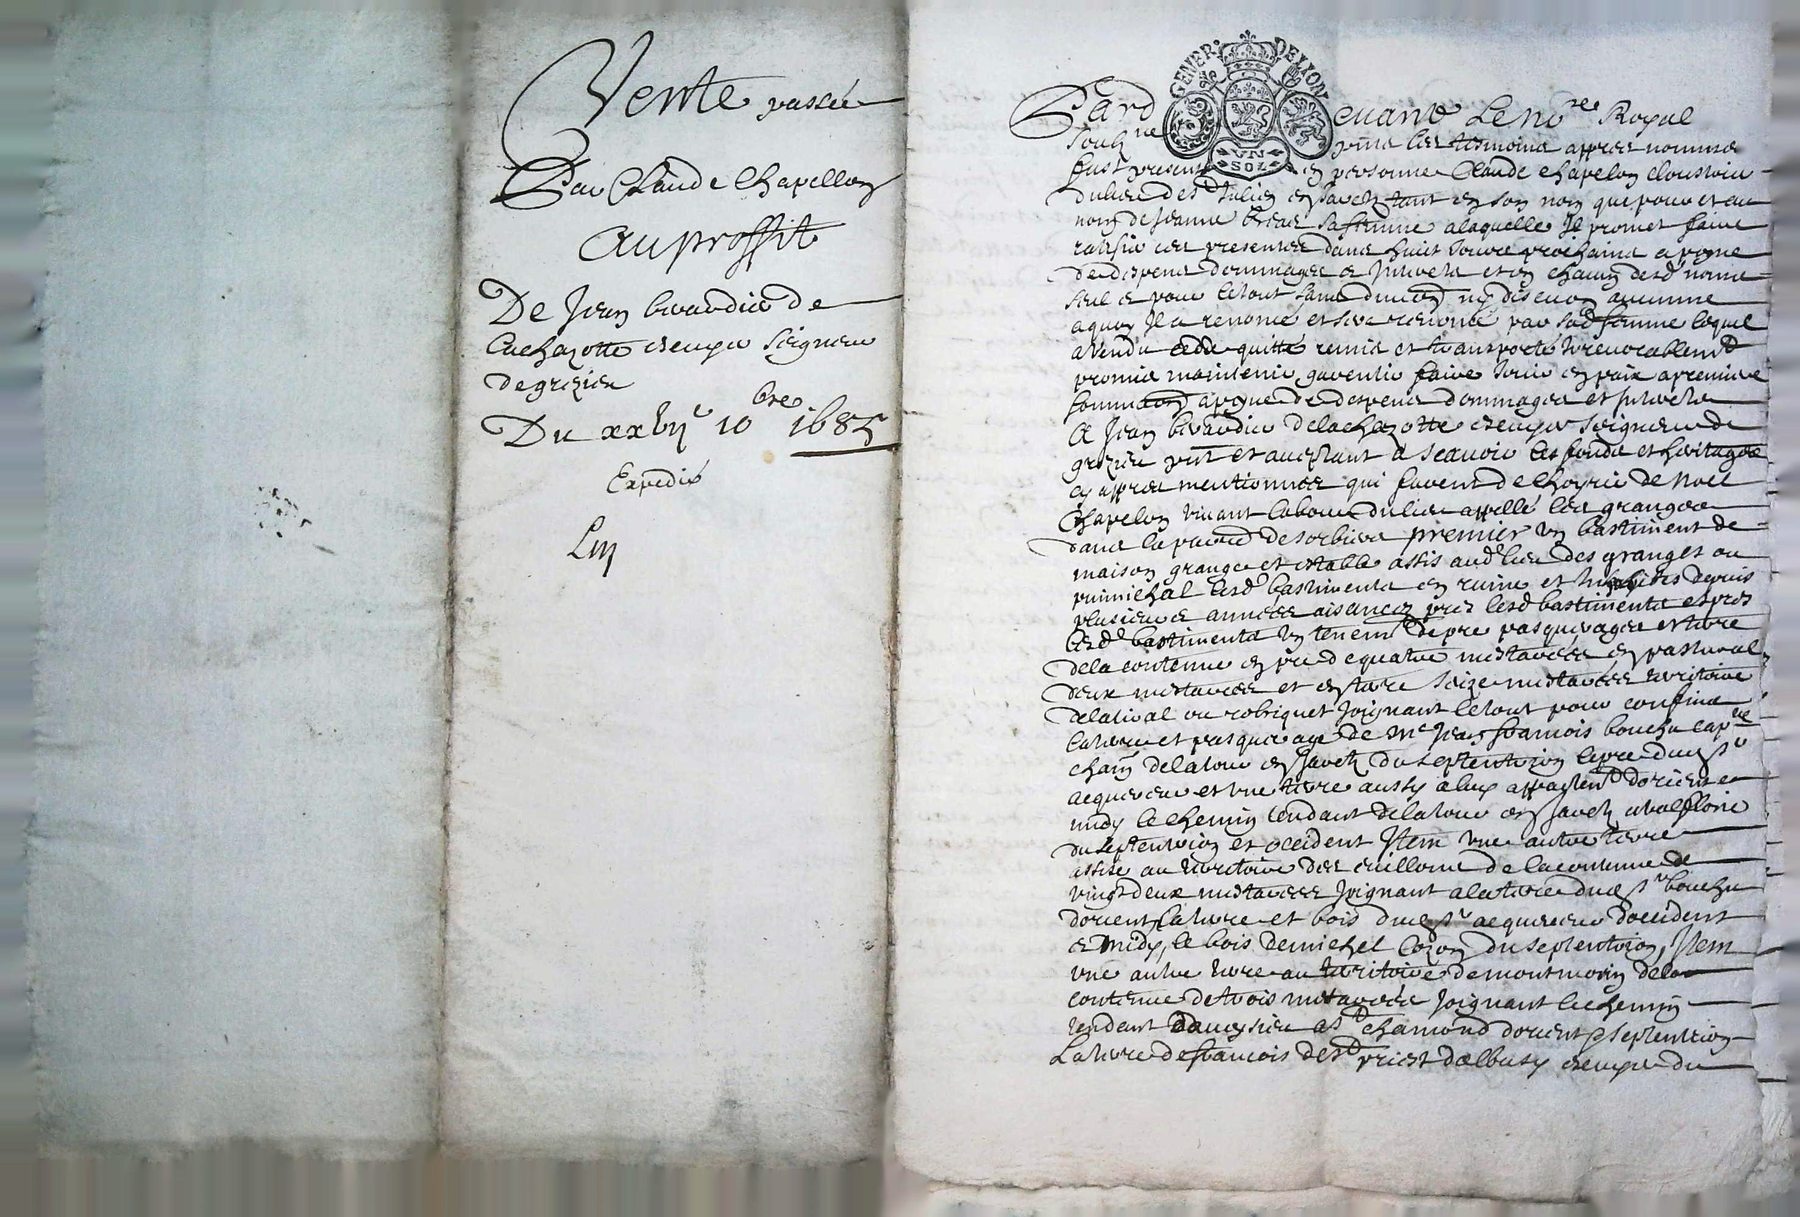 Vente passée
Par Claude Chapellon
Au proffit
De Jean beraudier de
Lachazotte escuyer Seigneur
de grezieu
Du xxvij e 10 bre 1685
Expedié
GENER. DE LION
UN SOL
Pard evant Le no re Royal
soubz ne les tesmoins appres nommes
fust present en personne Claude Chapelon cloustrier
du lieu de st Julien en Jarestz tant en son nom que pour et au
nom de Jeanne sa femme a laquelle Il promet faire
ratifier ces presentes dans huit Jours prochains a peyne
de despens dommages & Interests et en chacun desd noms
seul & pour le tout sans division ny discution aucunne
a quoy Il a renoncé et sera renoncé par sad femme lequel
a vendu cedé quitté remis et transporté Irrevocablemt
promis maintenir garentir faire Jouir en paix a premiere
sommaon a peyne de despens dommages et Interests
A Jean beraudier de lachazotte escuyer Seigneur de
grezieu pnt et acceptant a scavoir les fonds et heritages
cy appres mentionnes qui furent de de Noel
Chapelon vivant laboureur du lieu appellé les granges
dans la parroisse de sorbiers premier un bastiment de
maison grange et estable assis aud lieu des granges ou
puimichal lesd bastiments en ruine et Inhabités depuis
plusieurs années aisances pres lesd bastiments et pres
lesd bastiments un tenemt de pre pasquerages et terre
de la contenue en pre de quatre mestarees en pasturail
deux mestarees et en terre seize mestarees territoire
de la rival ou robriquet Joignant le tout pour confins
la terre et pasquerage de Me Jean francois bouchu cap ne
chain de la tour en Jarestz du septentrion le pre dud sr
acquereur et une terre aussy a luy appartent dorient et
midy le chemin tendant de la tour en Jarestz a valflorie
du septentrion et occident Item une autre terre
assise au territoire des de la contenue de
vingt deux mestarees Joignant a la terre dud sr bouchu
dorient la terre et bois dud sr acquereur doccident
& midy, le bois de michel du septentrion, Item
une autre terre au territoire de montmorin de la
contenue de trois mestarees Joignant le chemin
tendant a st chamond dorient & septentrion
La terre de francois de st priest dalbusy escuyer du